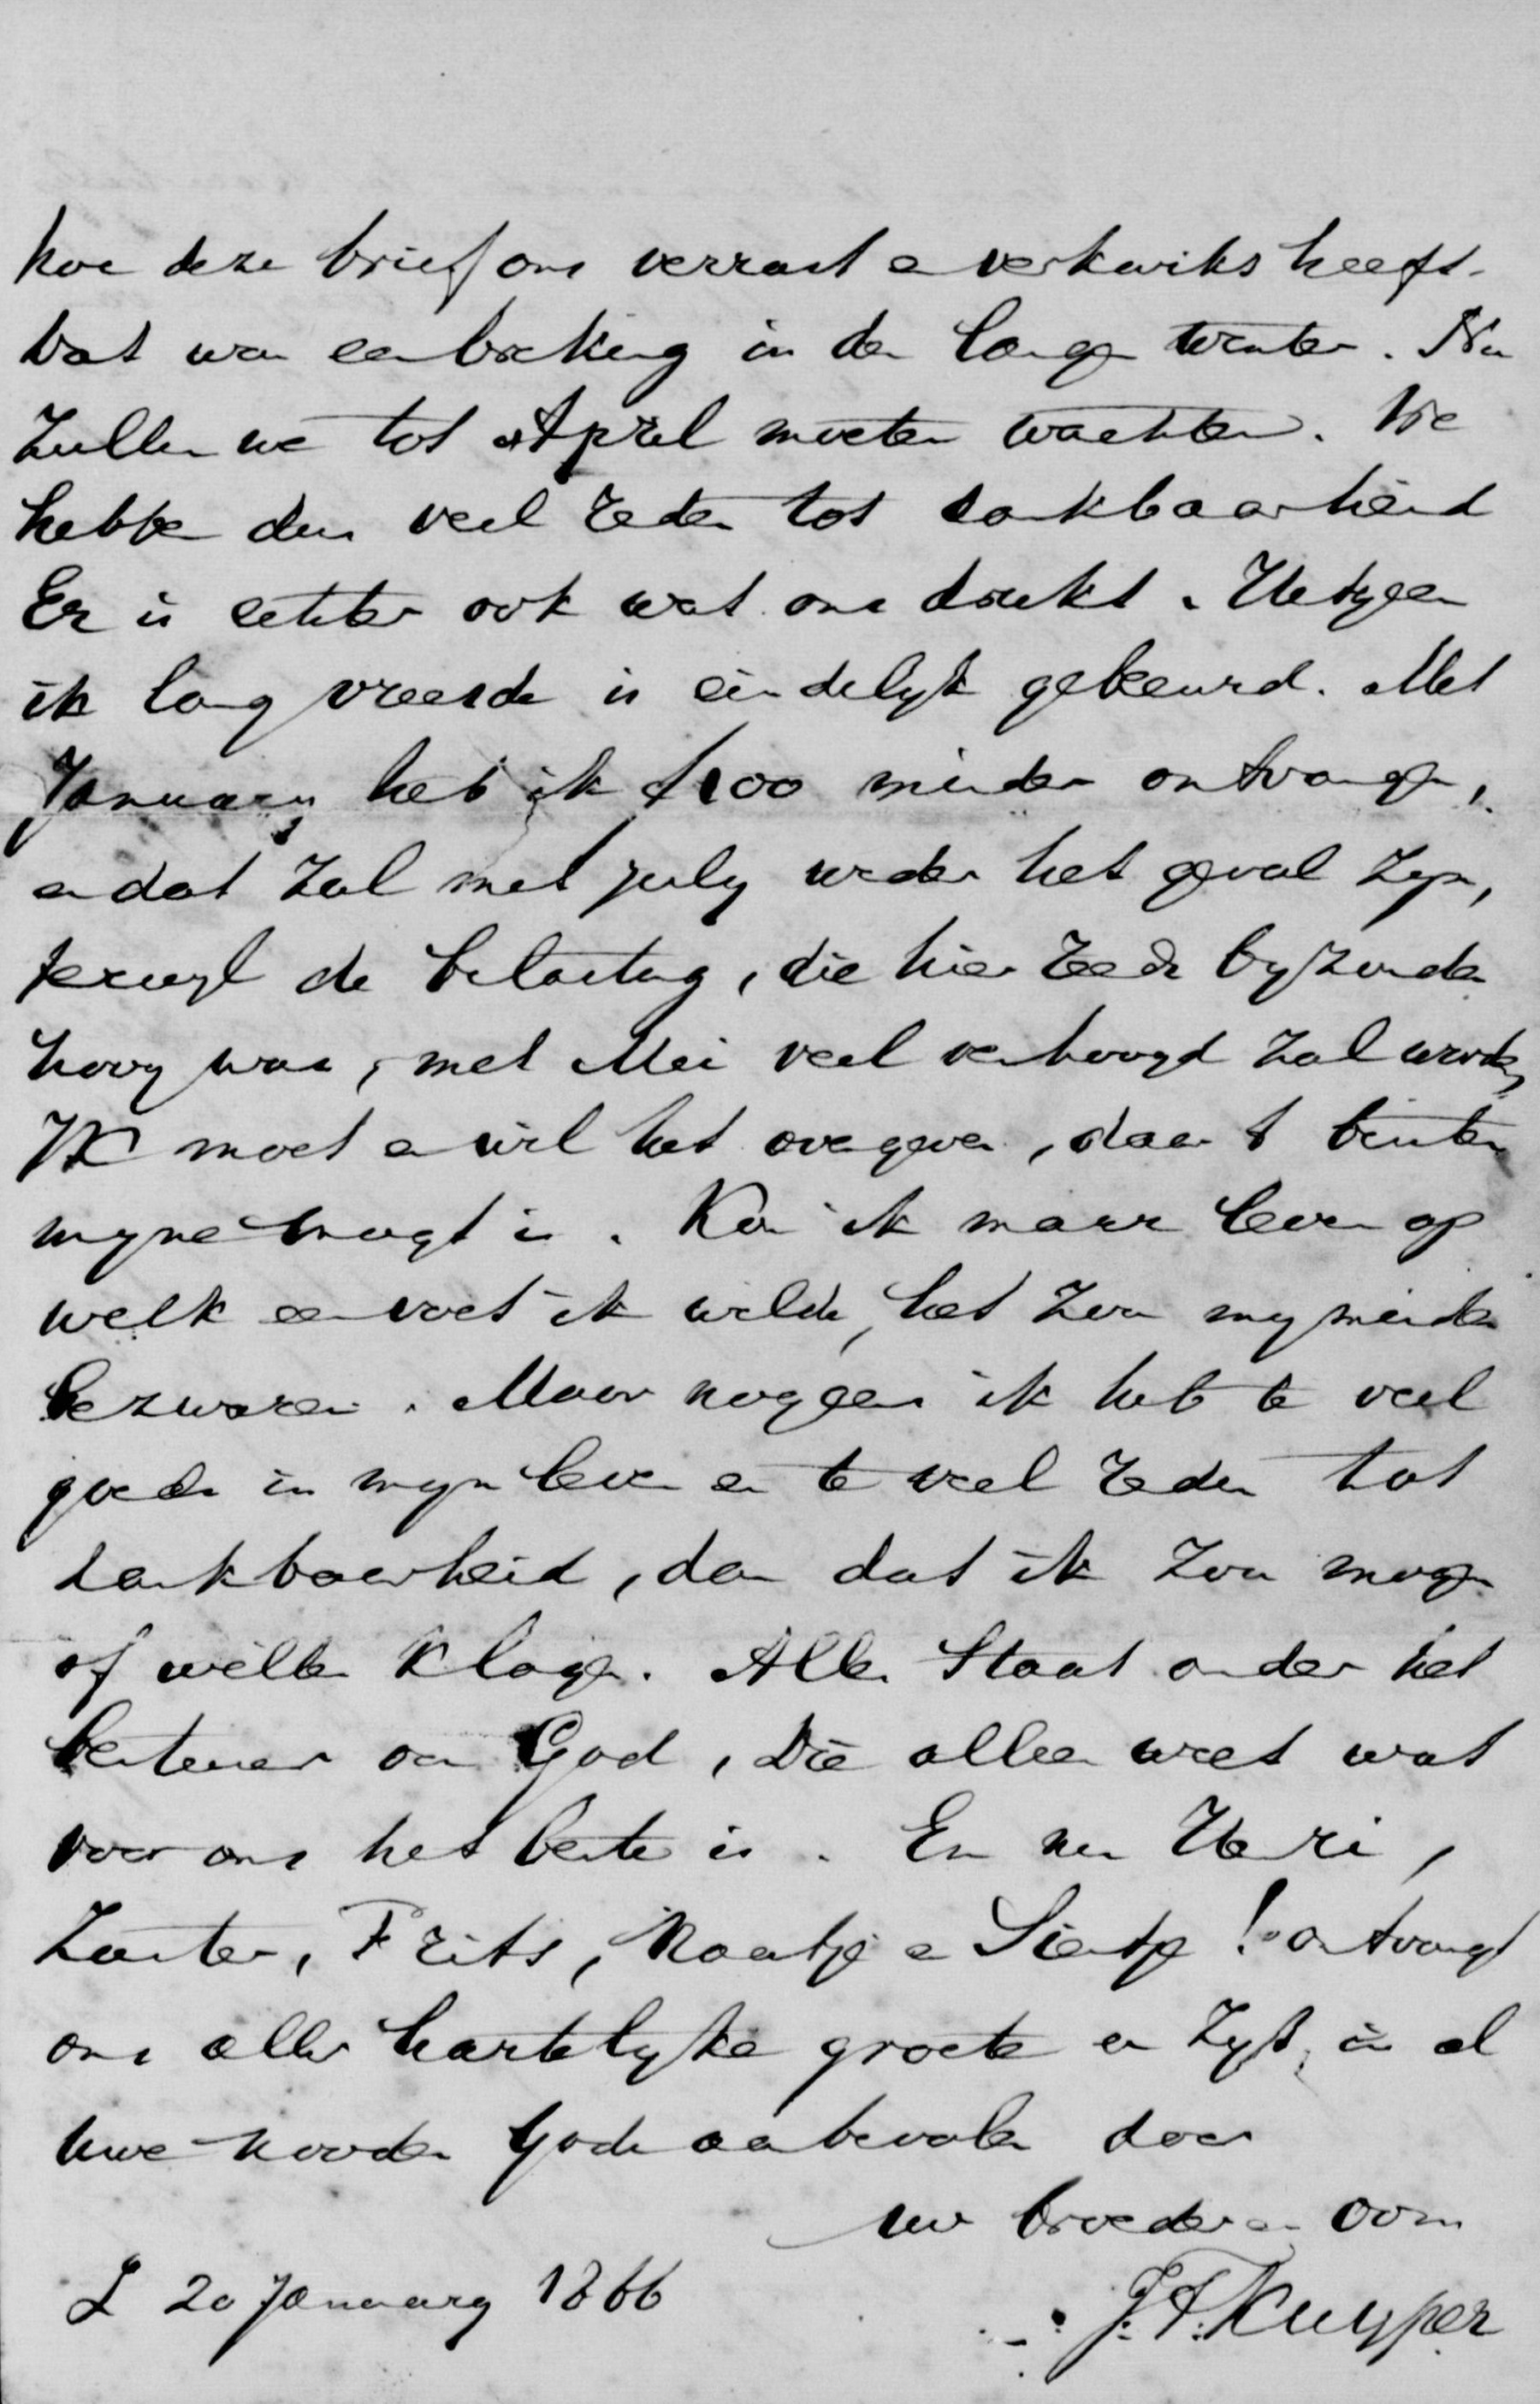 hoe deze brief ons verrast en verkwikt heeft.
Dat was een breking in den langen winter. Nu
zullen we tot April moeten wachten. We
hebben dus veel reden tot dankbaarheid
Er is echter ook wat ons drukt. Hetgeen
ik lang vreesde is eindelyk gebeurd. Met
January heb ik f100 minder ontvangen,
en dat zal met july weder het geval zyn,
terwyl de belasting, die hier reeds byzonder
hoog was, met Mei veel verhoogd zal worden,
Ik moet en wil het overgeven, daar 't buiten
myne magt is. Kon ik maar leven op
welk een voet ik wilde, het zou my minder
bezwaren. Maar neen ik heb te veel
goeds in myn leven en te veel reden tot
dankbaarheid, dan dat ik zou mogen
of willen klagen. Alles staat onder het
bestuur van God, Die alleen weet wat
voor ons het beste is. En nu Henri,
Zuster, Frits, Kaatje en Sientje! ontvangt
ons aller hartelyke groete en zyt in al
uwe nooden Gode aanbevolen door
uw broeder en oom
L 20 January 1866
J. F. Kuyper